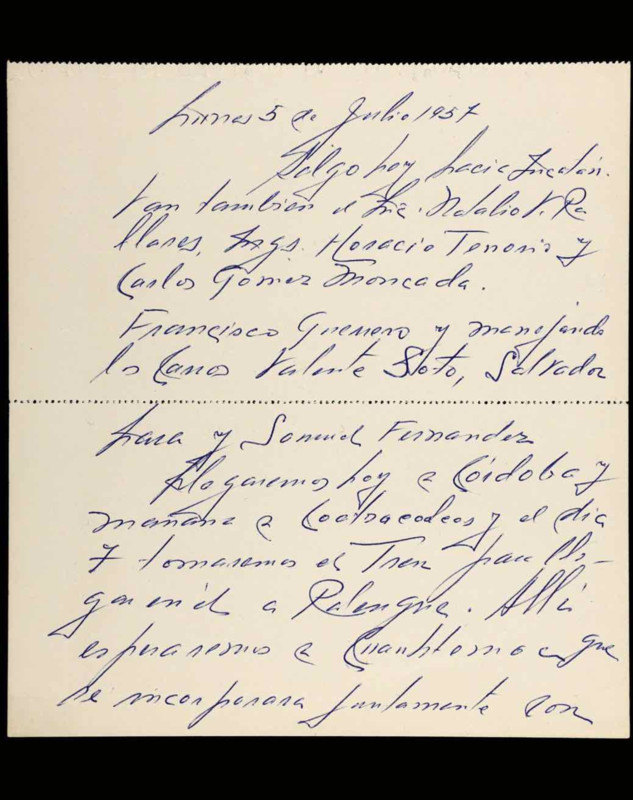 Lunes 5 de Julio 1957
Salgo hoy hacia Yucatán.
Van tambien el Lic. Natalio V. Pa
llares, Ings. Horacio Tenorio y
Carlos Gómez Moncada.
Francisco Guerrero y manejando
los Carros Valente Soto, Salvador
Lara y Samuel Fernandez
Llegaremos hoy a Córdoba y
mañana a Coatzacoalcos y el dia
7 tomaremos el Tren para lle-
gar en el a Palenque. Allí
esperaremos a Cuauhtemoc que
se incorporara juntamente con